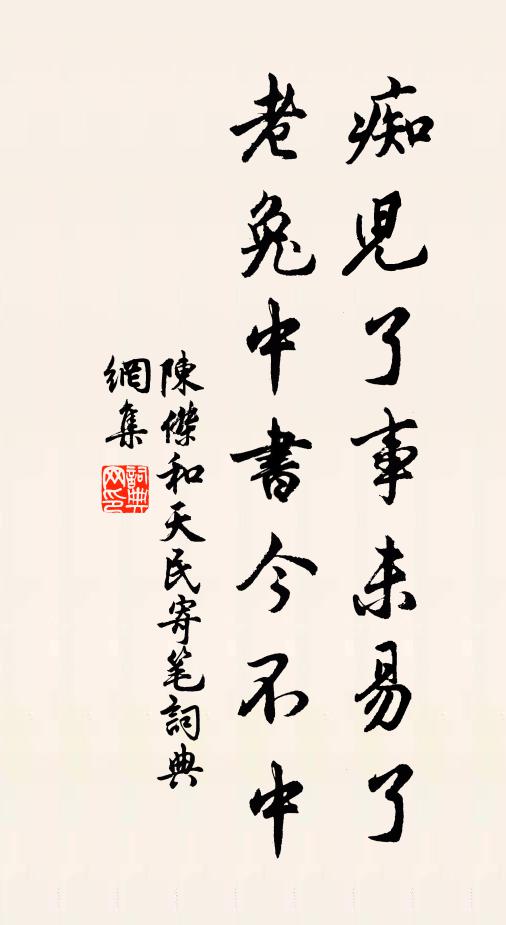 痴兒了事未易了
老兔中書今不中
陳傑和天民寄笔詞典
網集
詞典
网印